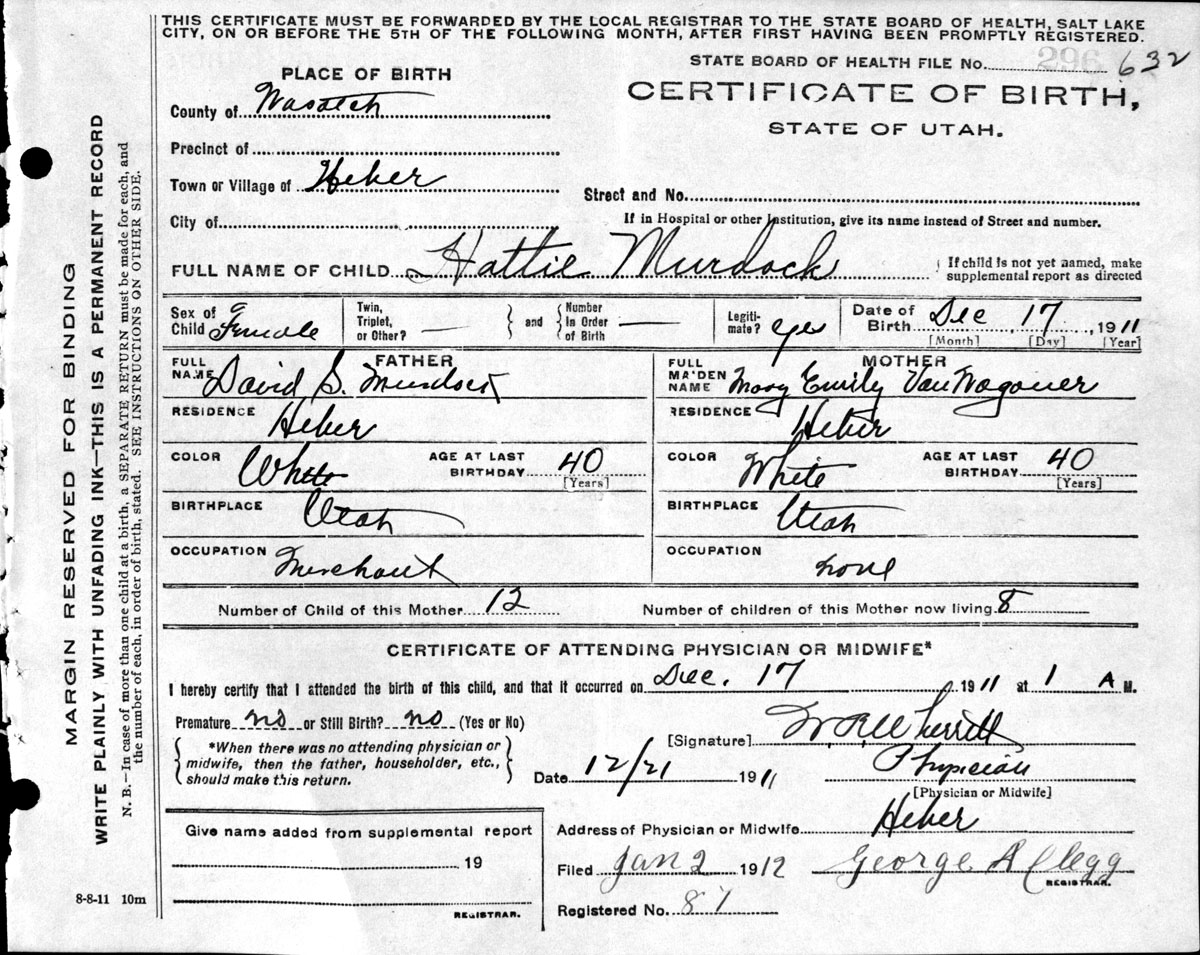 THIS CERTIFICATE MUST BE FORWARDED BY THE LOCAL REGISTRAR TO THE STATE BOARD OF HEALTH, SALT LAKE
CITY, ON OR BEFORE THE 5TH OF THE FOLLOWING MONTH, AFTER FIRST HAVING BEEN PROMPTLY REGISTERED.
STATE BOARD OF HEALTH FILE No. 296 632
PLACE OF BIRTH
CERTIFICATE OF BIRTH,
STATE OF UTAH.
County of Wasatch
Precinct of
Town or Village of Heber
Street and No.
City of
If in Hospital or other Institution, give its name instead of Street and number.
FULL NAME OF CHILD Hattie Murdock
If child is not yet named, make
supplemental report as directed
Sex of
Child Female
Twin,
Triplet,
or Other? —
and
Number
in Order
of Birth —
Legiti-
mate? yes
Date of
Birth Dec 17, 1911
[Month] [Day] [Year]
FATHER
FULL
NAME David S. Murdock
RESIDENCE Heber
COLOR White
AGE AT LAST
BIRTHDAY 40
[Years]
BIRTHPLACE Utah
OCCUPATION Merchant
MOTHER
FULL
MAIDEN
NAME Mary Emily Van Wagoner
RESIDENCE Heber
COLOR White
AGE AT LAST
BIRTHDAY 40
[Years]
BIRTHPLACE Utah
OCCUPATION none
Number of Child of this Mother 12
Number of children of this Mother now living 8
CERTIFICATE OF ATTENDING PHYSICIAN OR MIDWIFE*
I hereby certify that I attended the birth of this child, and that it occurred on Dec. 17 1911 at 1 A M.
Premature no or Still Birth? no (Yes or No)
*When there was no attending physician or
midwife, then the father, householder, etc.,
should make this return.
[Signature]
Date 12/21 1911
Physician
[Physician or Midwife]
Address of Physician or Midwife Heber
Give name added from supplemental report
19
REGISTRAR.
Filed Jan 2 1912 George A Clegg
REGISTRAR.
Registered No. 87
8-8-11 10m
MARGIN RESERVED FOR BINDING
WRITE PLAINLY WITH UNFADING INK—THIS IS A PERMANENT RECORD
N. B.—In case of more than one child at a birth, a SEPARATE RETURN must be made for each, and
the number of each, in order of birth, stated. SEE INSTRUCTIONS ON OTHER SIDE.